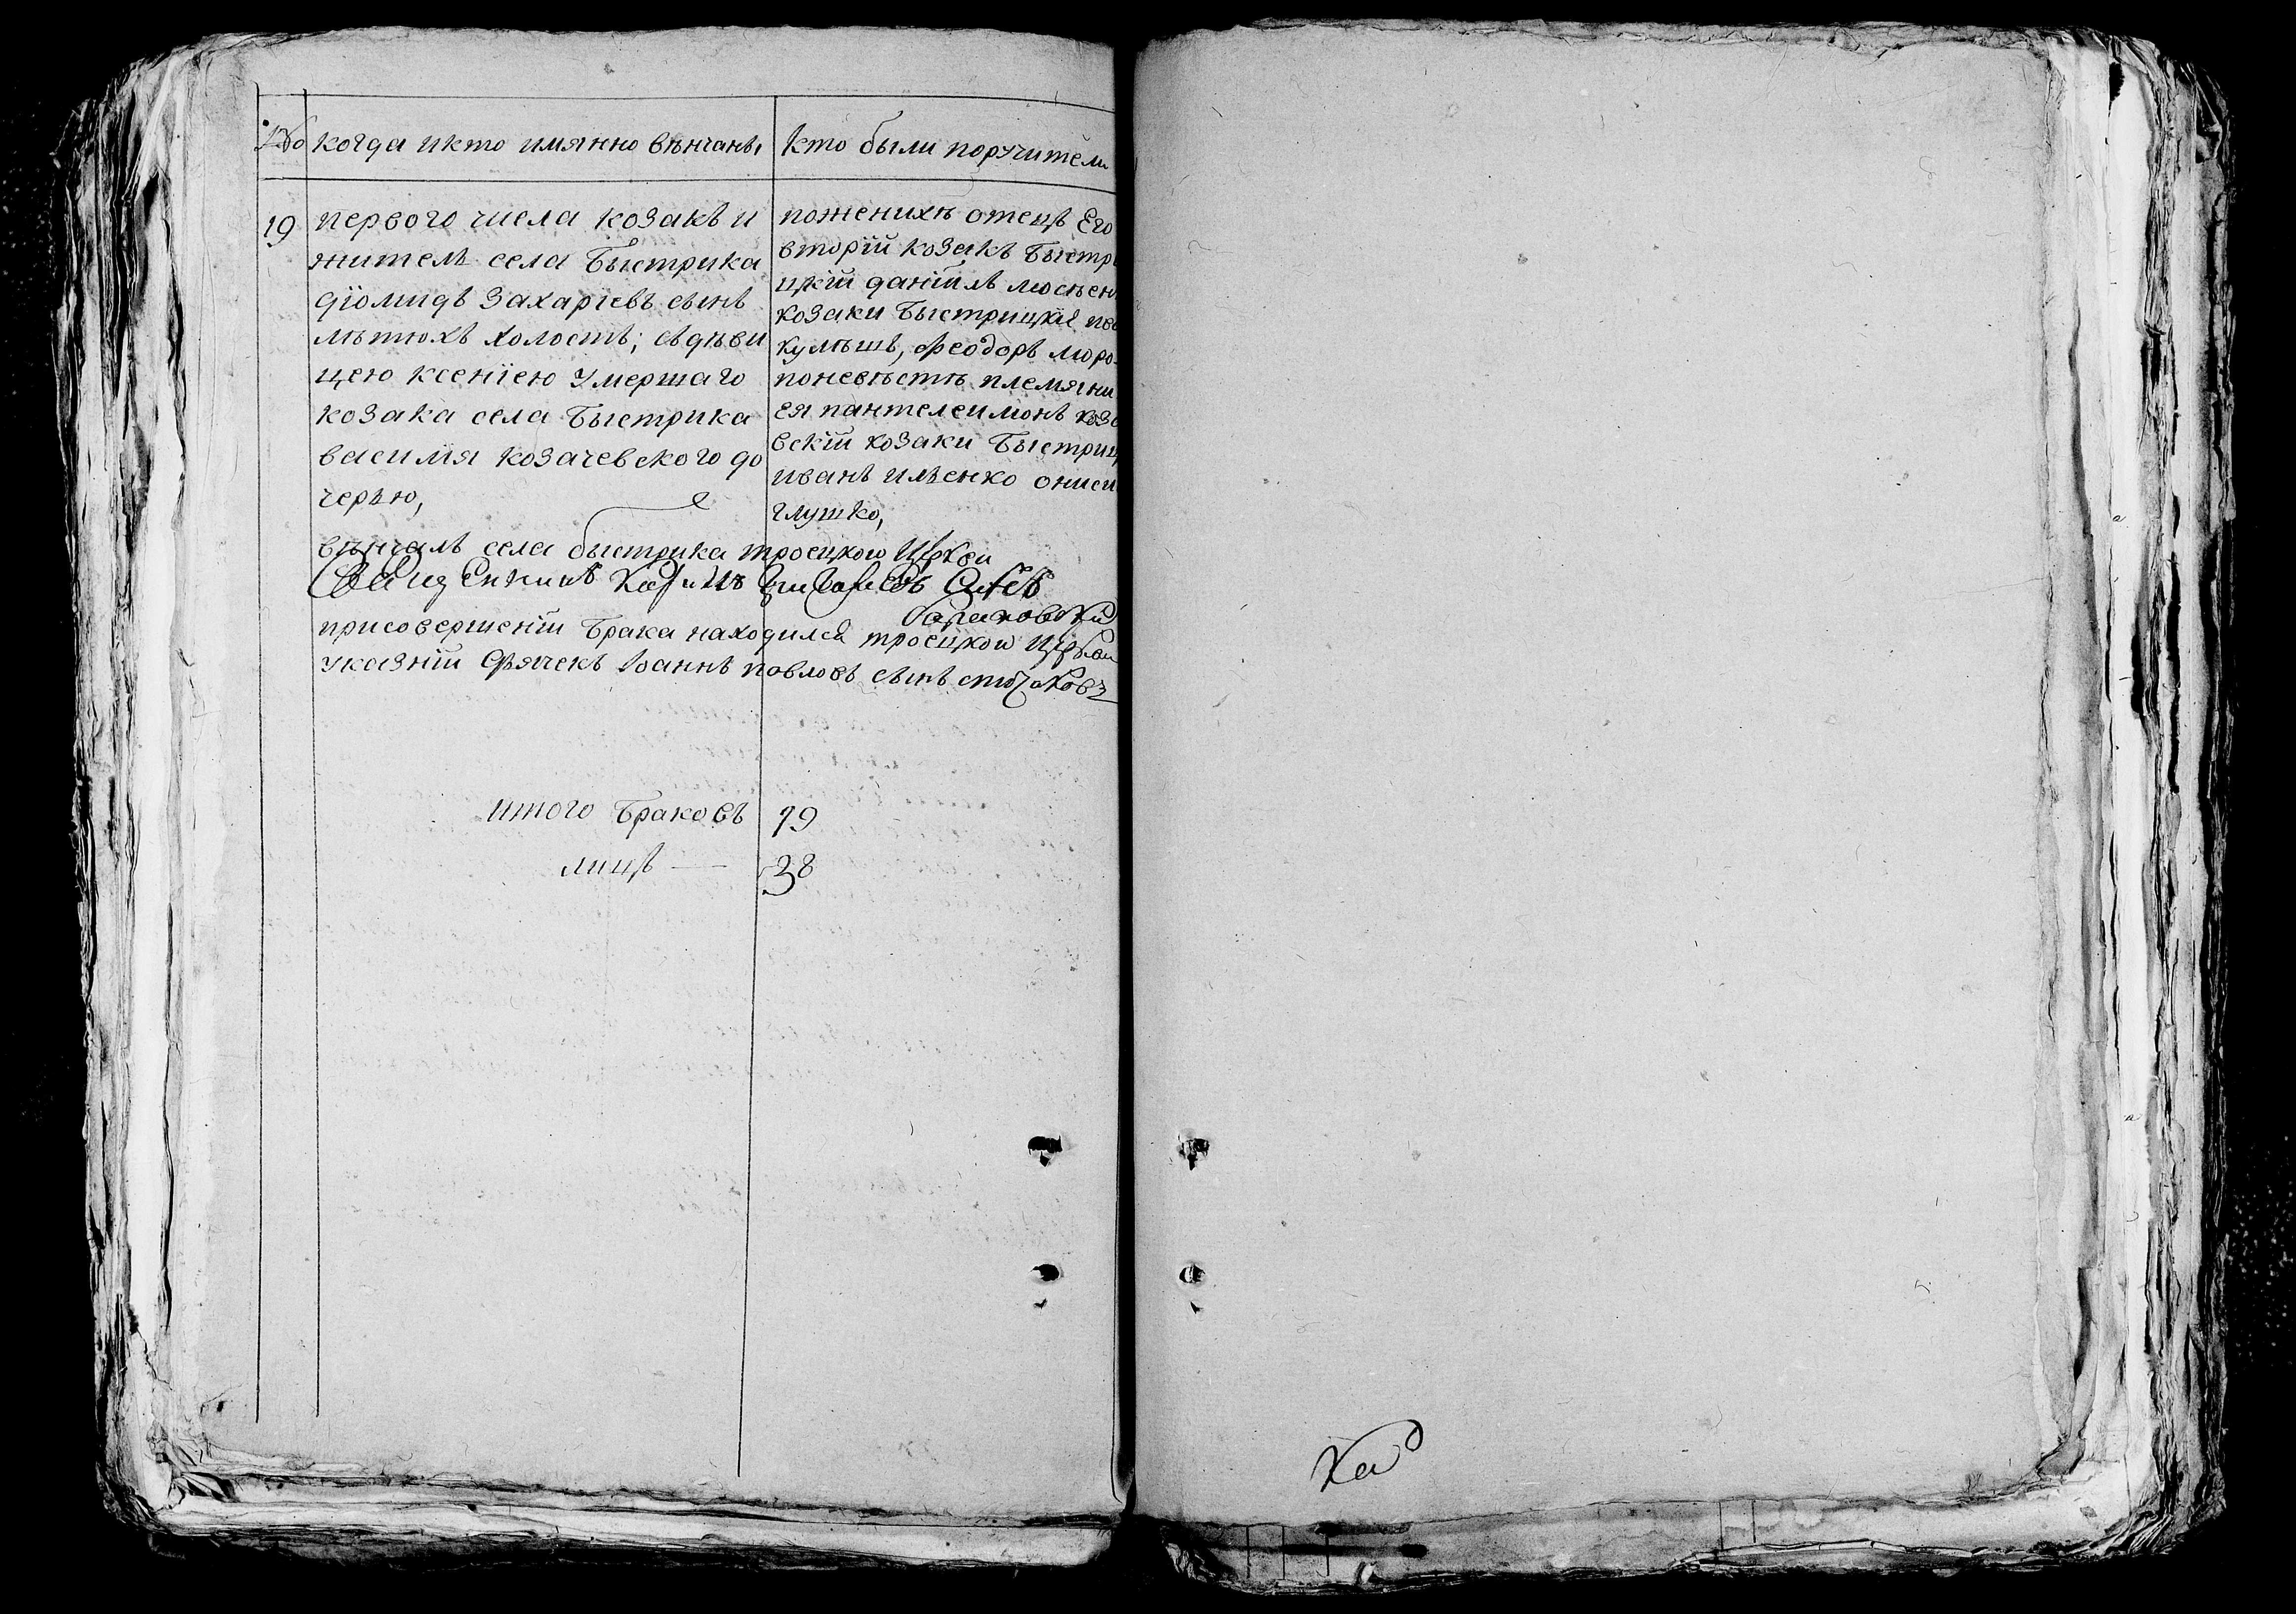 № когда икто имянно вѣнчаны
кто были поручители
19 первого числа козакъ и
житель села Быстрика
діомидъ Захаріевъ сынъ
мѣтюхъ холостъ; съдѣви
цею ксеніею умершаго
козака села Быстрика
василия козачевского до
черью,
поженихѣ отецъ Его
вторій козакъ Быстр
цкій даніилъ
козаки Быстрицкіе
кулѣшъ, феодоръ моро
поневѣстѣ племянни
ея пантелеимонъ коза
вскій козаки Быстриц
иванъ ильенко ониси
глушко,
вѣнчалъ села быстрика троецкои Церкви
Священникъ
присовершеніи Брака находился троецкои Церкви
указній Дячекъ Іоаннъ павловъ сынъ
итого Браковъ 19
лицъ — 38